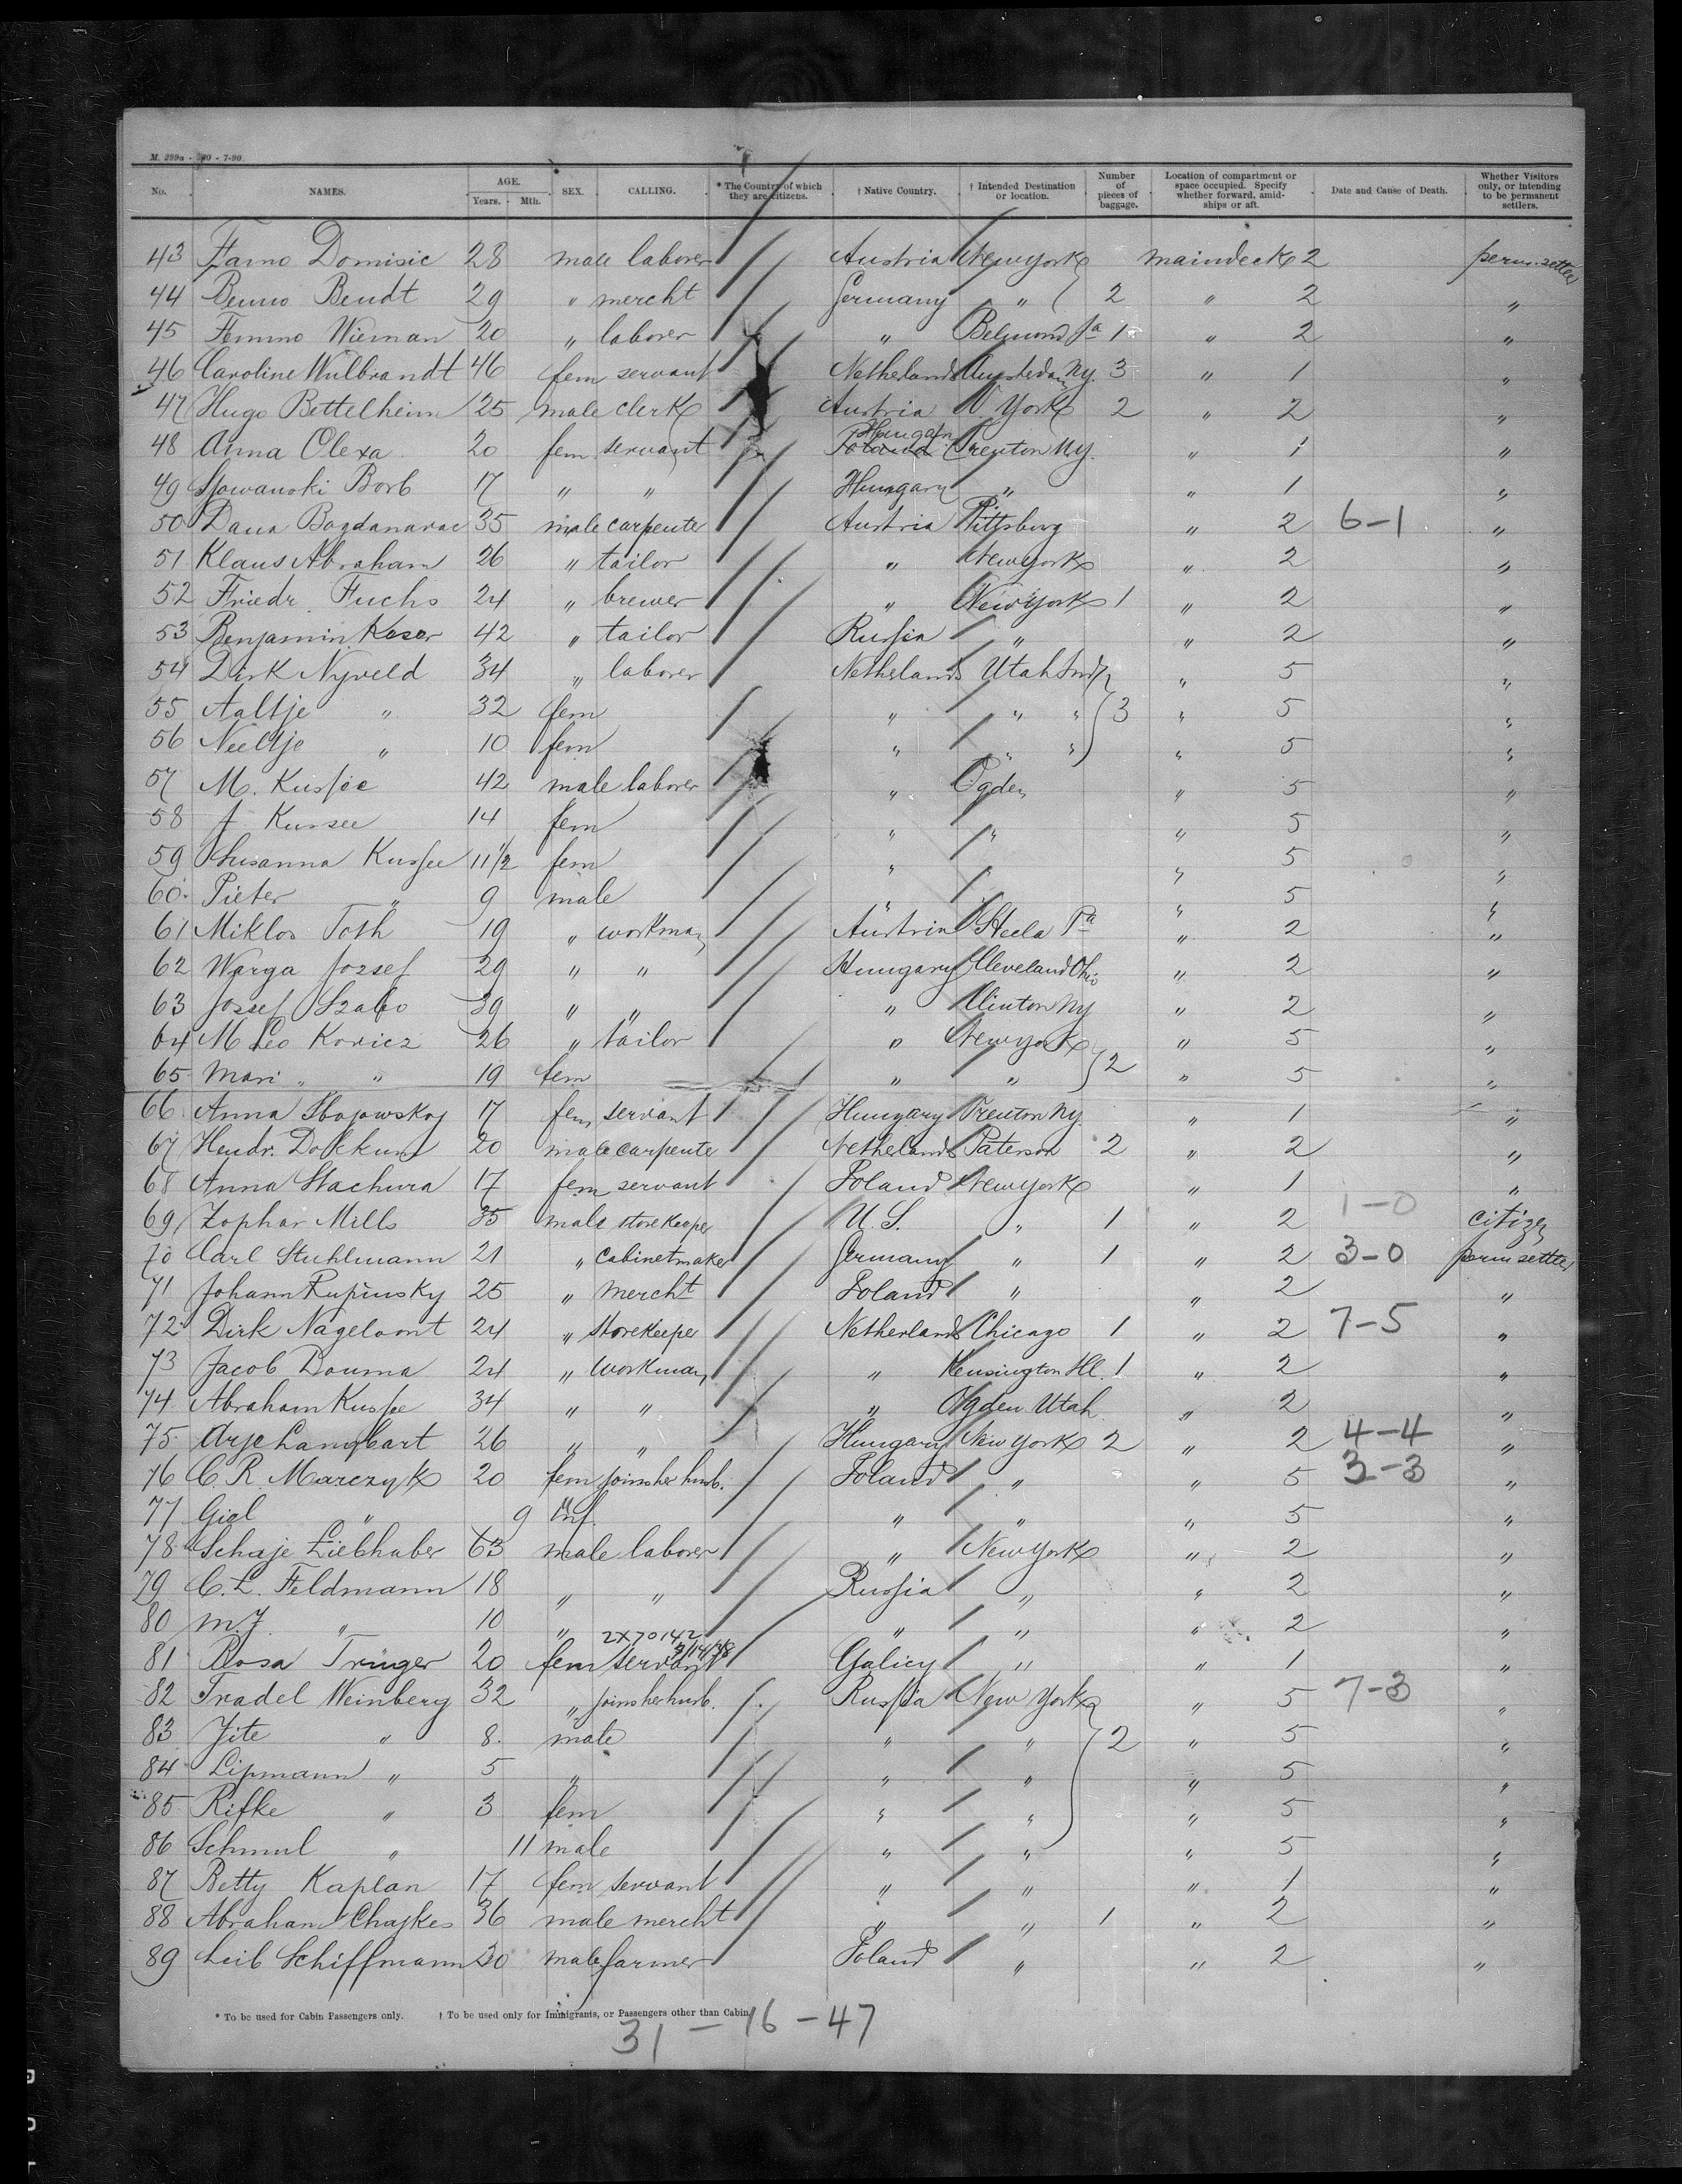 M. 299a - 300 - 7-90
No. NAMES. AGE. Years. Mth. SEX. CALLING. * The Country of which they are citizens. † Native Country. † Intended Destination or location. Number of pieces of baggage. Location of compartment or space occupied. Specify whether forward, amid-ships or aft. Date and Cause of Death. Whether Visitors only, or intending to be permanent settlers.
43 Domisic 28 male laborer Austria New york maindeck 2 perm. settler
44 Benno Bendt 29 " mercht Germany " 2 " 2 "
45 Wieman 20 " laborer " Belmond 1 " 2 "
46 Caroline Wulbrandt 46 fem servant Netherlands Amsterdam Ny. 3 " 1 "
47 Hugo Bettelheim 25 male clerk Austria N. York 2 " 2 "
48 Anna Olexa 20 fem servant Poland Hungary Trenton Ny. " 1 "
49 Borb 17 " " Hungary " " 1 "
50 Dana Bogdanavac 35 male carpenter Austria Pittsburg " 2 6-1 "
51 Klaus Abraham 26 " tailor " New york " 2 "
52 Friedr. Fuchs 24 " brewer " New York 1 " 2 "
53 Benjamin Keser 42 " tailor Russia " " 2 "
54 Dirk Nyveld 34 " laborer Netherlands Utah " 5 "
55 Aaltje " 32 fem " " " 3 " 5 "
56 Neeltje " 10 fem " " " " 5 "
57 M. Kussee 42 male laborer " Ogden " 5 "
58 J Kussee 14 fem " " " 5 "
59 Susanna Kussee 11 1/2 fem " " 5 "
60 Pieter " 9 male " " 5 "
61 Miklos Toth 19 " workman Austria Pa " 2 "
62 Warga Jozsef 29 " " Hungary Cleveland Ohio " 2 "
63 Jozsef Szabo 39 " " " Clinton Ny " 2 "
64 M Leo Koricz 26 " tailor " New york " 5 "
65 Mari " " 19 fem " " 2 " 5 "
66 Anna 17 fem servant Hungary Trenton Ny. " 1 "
67 Hendr. Dokkum 20 male carpenter Netherlands Paterson 2 " 2 "
68 Anna Stachura 17 fem servant Poland New york " 1 "
69 Zophar Mills 35 male storekeeper U.S. " 1 " 2 1-0 citizen
70 Carl Stuhlmann 21 " cabinetmaker Germany " 1 " 2 3-0 perm settler
71 Johann Rupinsky 25 " mercht Poland " " 2 "
72 Dirk Nagelvoort 24 " storekeeper Netherlands Chicago 1 " 2 7-5 "
73 Jacob Douma 24 " workman " Kensington Ill. 1 " 2 "
74 Abraham Kussee 34 " " " Ogden Utah " 2 "
75 Arje Langbart 26 " " Hungary New York 2 " 2 4-4 "
76 C. R. Marczyk 20 fem joins her husb. Poland " " 5 3-3 "
77 Giel " 9 inf. " " " 5 "
78 Schaje Liebhaber 63 male laborer " New York " 2 "
79 C. L. Feldmann 18 " " Russia " " 2 "
80 M. J. " 10 " " " " 2 "
2X70142
81 Rosa Trüger 20 fem servant Galicy " " 1 "
82 Fradel Weinberg 32 " joins her husb. Russia New York " 5 7-3 "
83 Jite " 8 male " " 2 " 5 "
84 Lipmann " 5 " " " " 5 "
85 Rifke " 3 fem " " " 5 "
86 Schmul " 11 male " " " 5 "
87 Betty Kaplan 17 fem servant " " " 1 "
88 Abraham Chajkes 36 male mercht " " 1 " 2 "
89 Leib Schiffmann 30 male farmer Poland " " 2 "
* To be used for Cabin Passengers only. † To be used only for Immigrants, or Passengers other than Cabin.
31 - 16 - 47